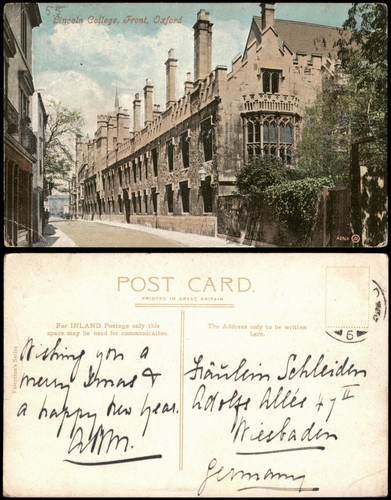 55
Lincoln College, Front, Oxford
POST CARD.
PRINTED IN GREAT BRITAIN.
For INLAND Postage only this
space may be used for communication.
The Address only to be written
here.
Wishing you a
merry Xmas &
a happy New Year.
Fräulein Schleiden
Adolfs Allée 47 II
Wiesbaden
Germany
6